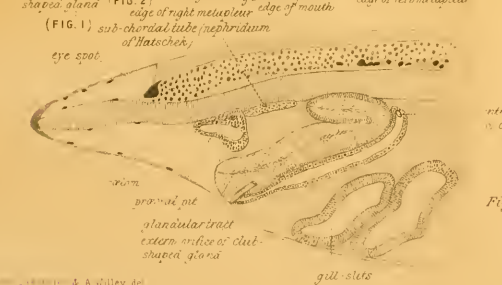 shaped gland (FIG. 2)
edge of right metapleur edge of mouth
(FIG. 1) sub-chordal tube (nephridium
of Hatschek)
eye spot
præoral pit
glandular tract
extern. orifice of club-
shaped gland
gill-slits
& A. Willey del.